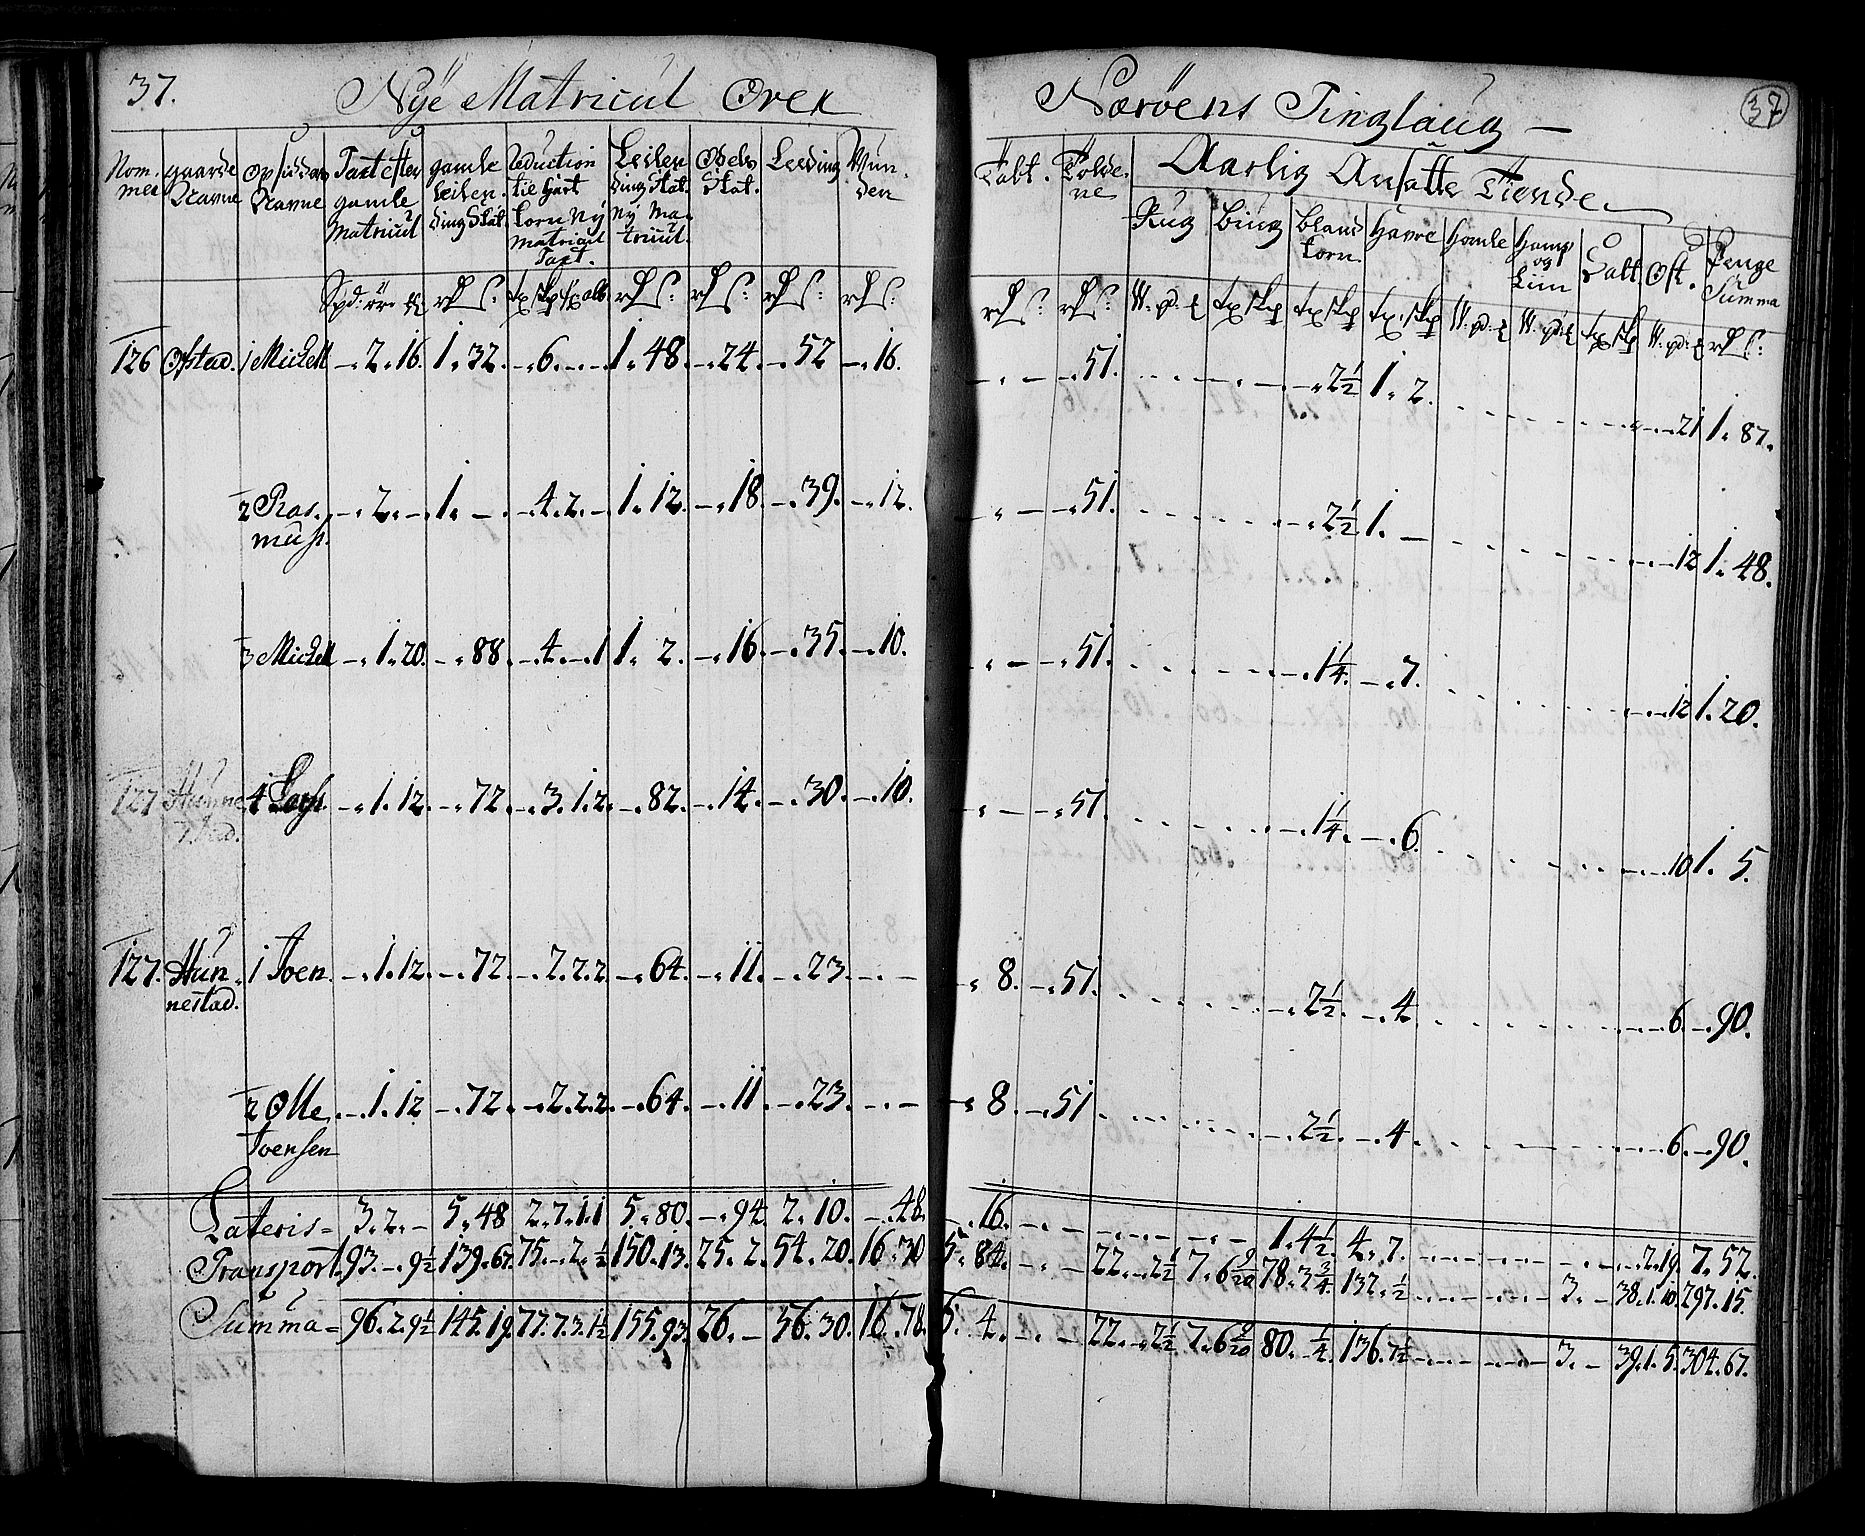 37. Nÿe Matricul Over Nærøens Tinglaug — 37
Nom- mer | gaarde Navne | Opsidder Navne | Taxt efter gamle Matricul | gamle Leilendings Skat. | Reduction til Hart korn Nÿ Matricul Taxt. | Leilendings Skat. Nÿ Matricul. | Odels Skat. | Leeding | | | Tolderne | Aarlig Ansatte Tiende
Rug | Biug | bland korn | Havre | Homle | Hamp og Liin | Salt | Ost. | Penge Summa
126 Ofstad. 1 Michell – . 2 . 16. 1 . 32. – . 6 . – . – 1 . 48. – . 24. – . 52 – . 16. – . – – . 51. – . 2½ 1 . 2. – . – . 21 1 . 87.
2 Ras- – . 2 . – 1 . – . – . 4 . 2 . – 1 . 12. – . 18. – . 39. – . 12. – . – – . 51. – . 2½ 1 . – – . – . 12 1 . 48.
mus.
3 Michell – . 1 . 20. – . 88. – . 4 . – . 1 1 . 2. – . 16. – . 35. – . 10. – . – – . 51. – . 1¼ – . 7. – . – . 12 1 . 20.
127 Hunne 4 Lars. – . 1 . 12. – . 72. – . 3 . 1 . 2. – . 82. – . 14. – . 30. – . 10. – . – – . 51 – . 1¼. – . 6. – . – . 10 1 . 5.
stad.
127. Hun- 1 Joen. – . 1 . 12. – . 72. – . 2 . 2 . 2 – . 64. – . 11. – . 23. – . – – . 8. – . 51. – . 2½. – . 4 – . – . 6. – . 90.
nestad.
2 Olle – . 1 . 12 – . 72. – . 2 . 2 . 2 – . 64. – . 11. – . 23. – . – – . 8. – . 51 – . 2½. – . 4. – . – . 6. – . 90.
Joensen
Lateris = 3 . 2 . – 5 . 48 2 . 7 . 1 . 1 5 . 80. – . 94. 2 . 10. – . 48. – . 16. – . – 1 . 4½. 4 . 7. – . 2 . 19. 7 . 52.
Transport. 93 . – . 9½ 139 . 67. 75 . – . 2 . ½ 150 . 13. 25 . 2. 54 . 20. 16 . 30 5 . 84. – . – 22 . – . 2½ 7 . 6 9/20 78 . 3¾ 132 . ½ 3 . – 38 . 1 . 10. 297 . 15.
Summa = 96 . 2 . 9½ 145 . 19. 77 . 7 . 3 . 1½ 155 . 93. 26 . – 56 . 30. 16 . 78. 6 . 4. – . – 22 . – . 2½ 7 . 6 9/20 80 . – ¼ 136 . 7½ 3 . – 39 . 1 . 5. 304 . 67.